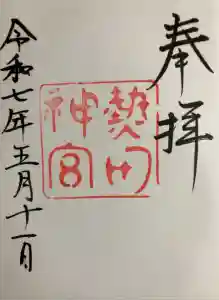 奉拝
熱田
神宮
令和七年五月十一日